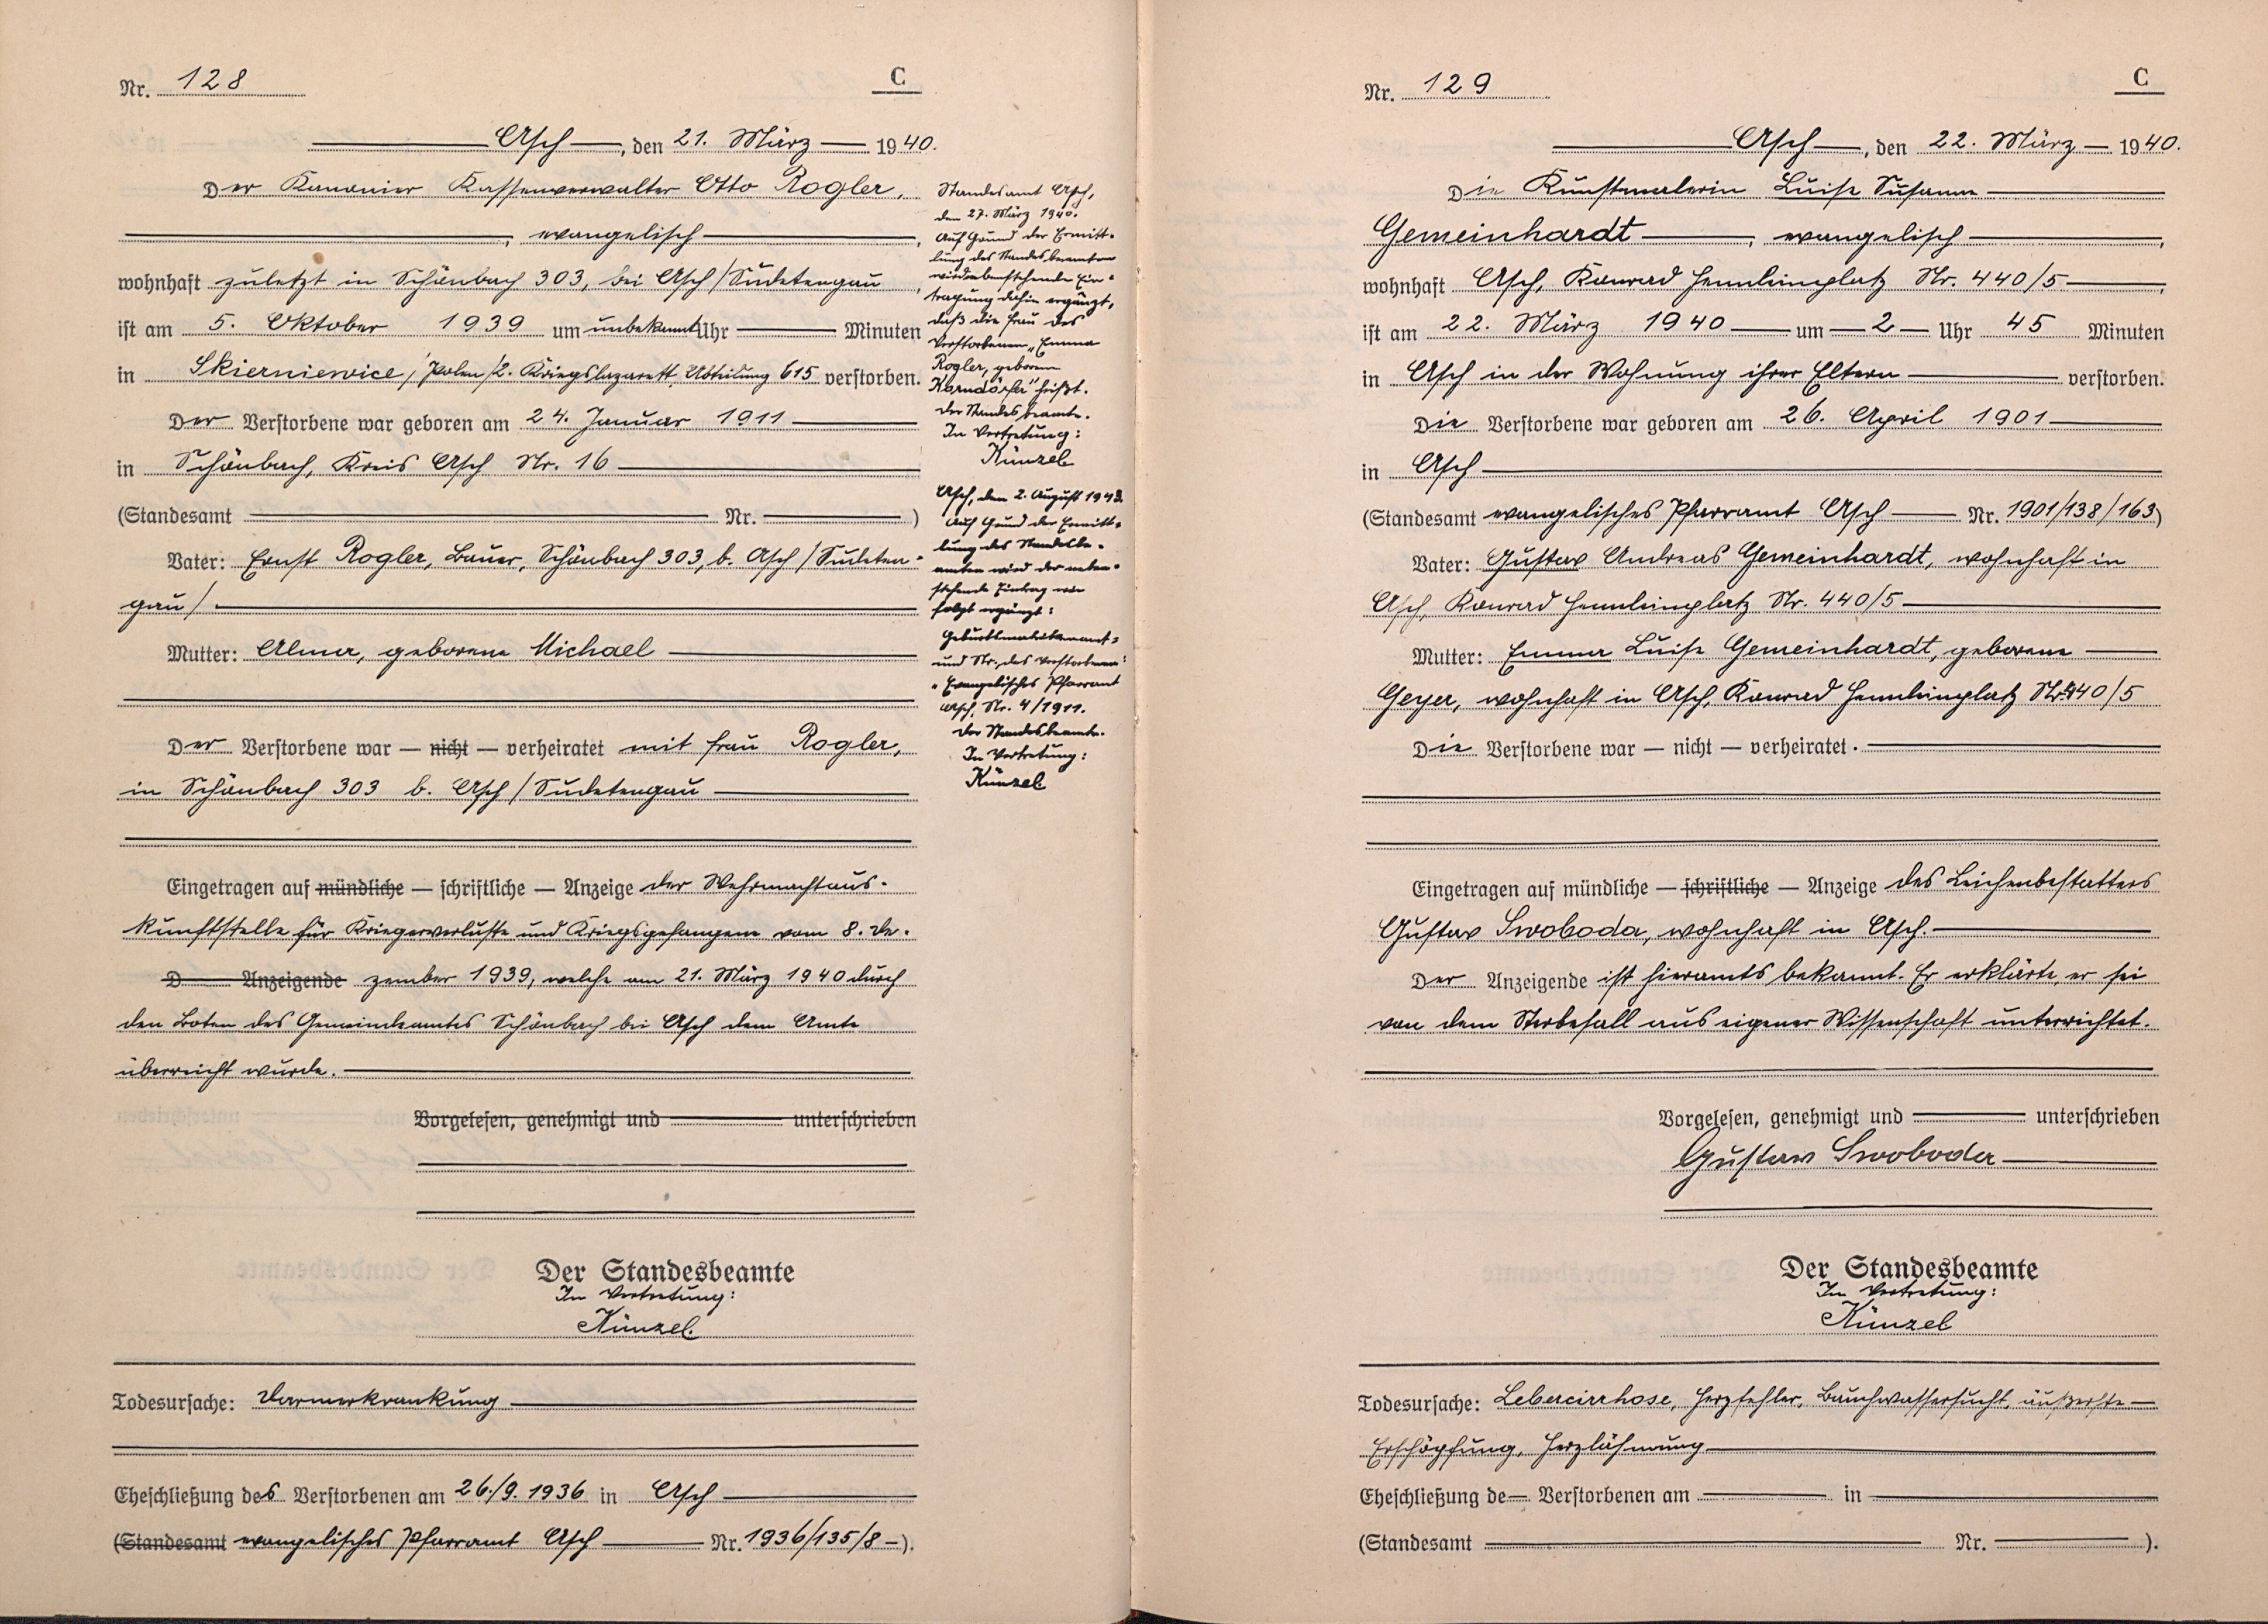 Nr. 128
C
Asch, den 21. März 1940.
Der Kanonier Kassenverwalter Otto Rogler,
, evangelisch,
wohnhaft zuletzt in Schönbach 303, bei Asch/Sudetengau,
ist am 5. Oktober 1939 um unbekannt Uhr Minuten
in Skierniewice, /Polen/2. Kriegslazarett, Abteilung 615 verstorben.
Der Verstorbene war geboren am 24. Januar 1911
in Schönbach, Kreis Asch Nr. 16
(Standesamt Nr. )
Vater: Ernst Rogler, Bauer, Schönbach 303, b. Asch/Sudeten-
gau/
Mutter: Alma, geborene Michael
Der Verstorbene war — nicht — verheiratet mit Frau Rogler,
in Schönbach 303 b. Asch/Sudetengau
Eingetragen auf mündliche — schriftliche — Anzeige der Wehrmachtaus-
kunftstelle für Kriegerverluste und Kriegsgefangene vom 8. De-
D Anzeigende zember 1939, welche am 21. März 1940 durch
den Boten des Gemeindeamtes Schönbach bei Asch dem Amte
überreicht wurde.
Vorgelesen, genehmigt und unterschrieben
Der Standesbeamte
In Vertretung:
Künzel.
Todesursache: Darmerkrankung
Eheschließung des Verstorbenen am 26./9. 1936 in Asch
(Standesamt evangelisches Pfarramt Asch Nr. 1936/135/8-).
Standesamt Asch,
den 27. März 1940.
Auf Grund der Ermitt-
lung des Standesbeamten
wird nebenstehende Ein-
tragung dahin ergänzt,
daß die Frau des
Verstorbenen „Emma
Rogler, geborene
Korndörfer" heißt.
Der Standesbeamte.
In Vertretung:
Künzel
Asch, den 2. August 1943.
Auf Grund der Ermitt-
lung des Standesbe-
amten wird der neben-
stehende Eintrag wie
folgt ergänzt:
und Nr. des Verstorbenen:
„Evangelisches Pfarramt
Asch, Nr. 4/1911.
Der Standesbeamte.
In Vertretung:
Künzel
Nr. 129
C
Asch, den 22. März 1940.
Die Kunstmalerin Luise Susanna
Gemeinhardt, evangelisch,
wohnhaft Asch, Konrad Henleinplatz Nr. 440/5,
ist am 22. März 1940 um 2 Uhr 45 Minuten
in Asch in der Wohnung ihrer Eltern verstorben.
Die Verstorbene war geboren am 26. April 1901
in Asch
(Standesamt evangelisches Pfarramt Asch Nr. 1901/138/163)
Vater: Gustav Andreas Gemeinhardt, wohnhaft in
Asch, Konrad Henleinplatz Nr. 440/5
Mutter: Emma Luise Gemeinhardt, geborene
Geyer, wohnhaft in Asch, Konrad Henleinplatz Nr. 440/5
Die Verstorbene war — nicht — verheiratet.
Eingetragen auf mündliche — schriftliche — Anzeige des Leichenbestatters
Gustav Swoboda, wohnhaft in Asch.
Der Anzeigende ist hieramts bekannt. Er erklärte, er sei
von dem Sterbefall aus eigener Wissenschaft unterrichtet.
Vorgelesen, genehmigt und unterschrieben
Gustav Swoboda
Der Standesbeamte
In Vertretung:
Künzel
Todesursache: Lebercirrhose, Herzfehler, Bauchwassersucht, äußerste
Erschöpfung, Herzlähmung
Eheschließung de Verstorbenen am in
(Standesamt Nr. ).